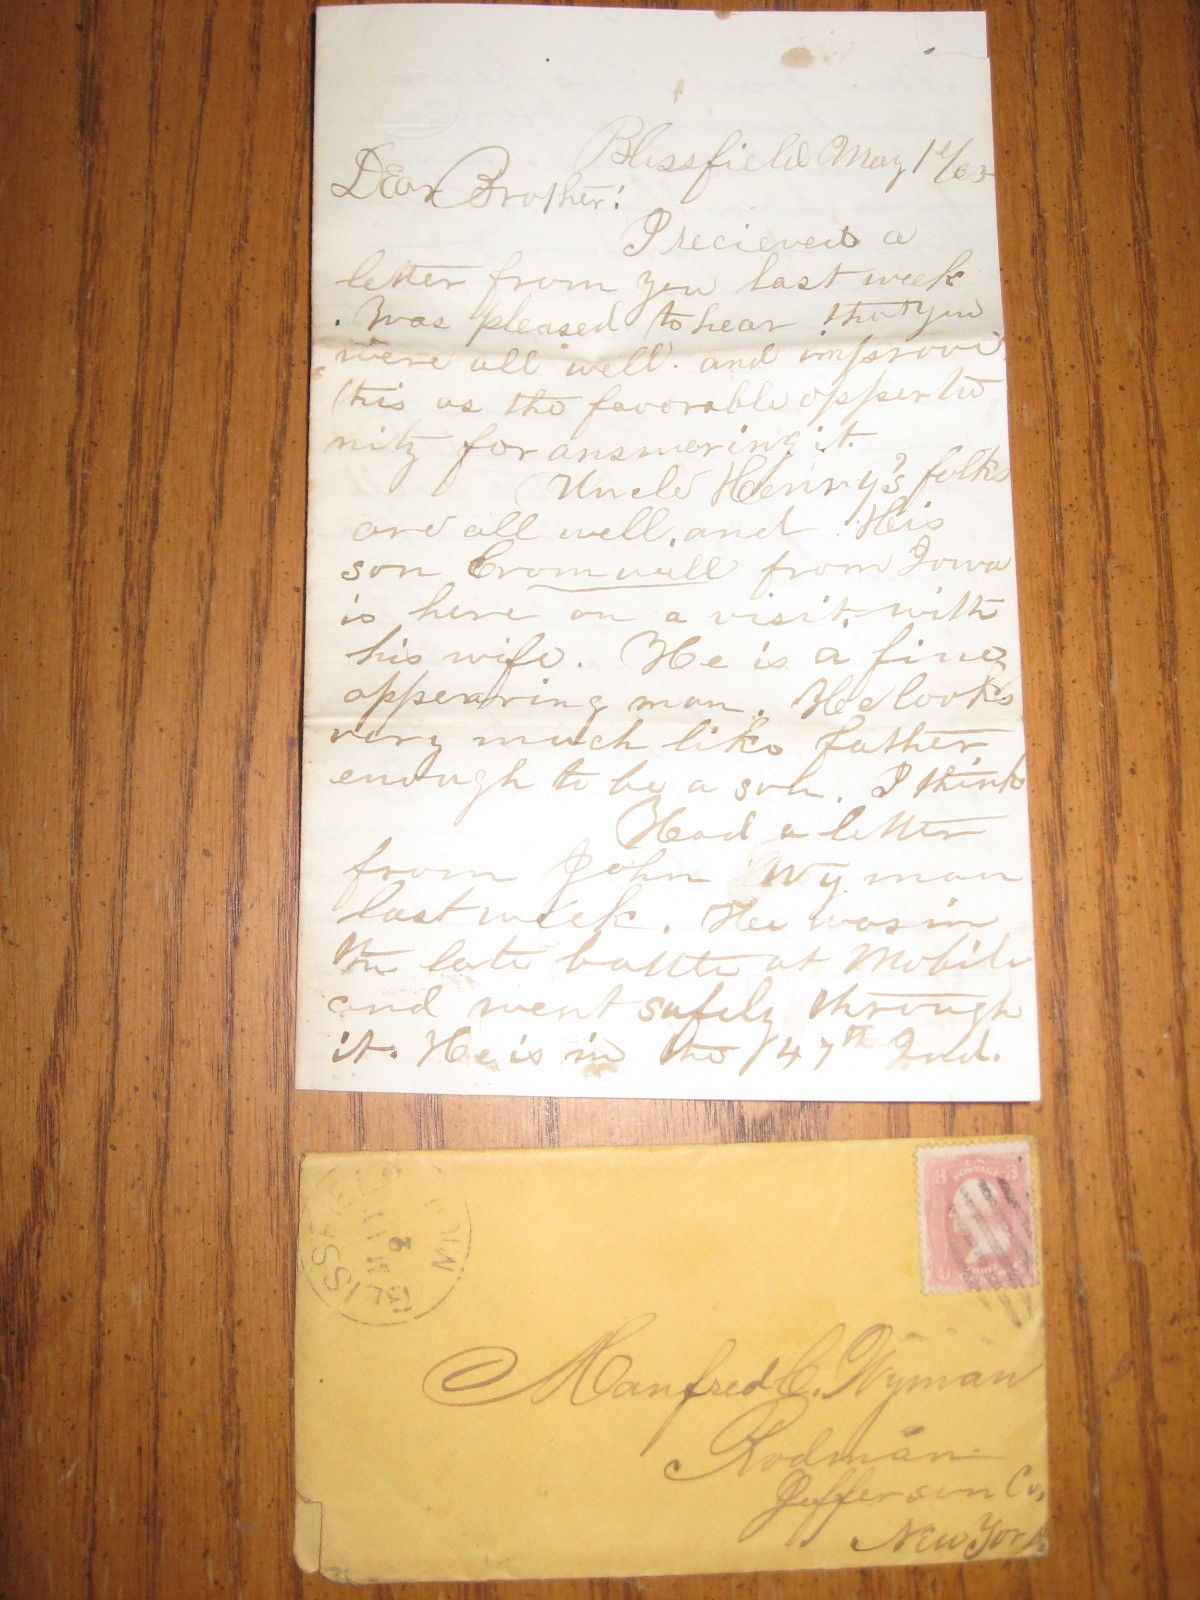 Blissfield May 1st/65
Dear Brother:
I recieved a
letter from you last week
. Was pleased to hear that you
were all well. and improve
this as the favorable oppertu
nity for answering it.
Uncle Henry's folks
are all well, and His
son Cromwell from Iowa
is here on a visit with
his wife. He is a fine
appearing man. He looks
very much like father
enough to be a son. I think
Had a letter
from John Wyman
last week. He was in
the late battle at Mobile
and went safely through
it. He is in the 47th Ind.
BLISSFIELD MICH
2
U.S. POSTAGE
Manfred C. Wyman
Rodman
Jefferson Co,
New York